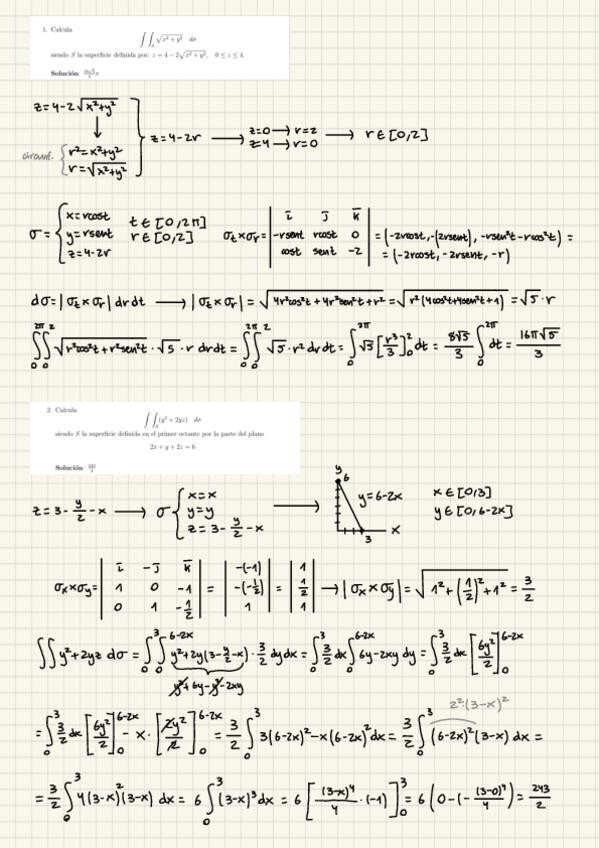 1. Calcula
∫∫_S √(x² + y²) dσ
siendo S la superficie definida por: z = 4 − 2√(x² + y²), 0 ≤ z ≤ 4.
Solución: 16√5/3 π
z = 4-2√(x²+y²)
circunf. { r² = x²+y²
r = √(x²+y²)
} z = 4-2r → z=0 → r=2
z=4 → r=0 → r ∈ [0,2]
σ = { x = rcost
y = rsent
z = 4-2r
t ∈ [0, 2π]
r ∈ [0, 2]
σt × σr = | i j k |
| -rsent rcost 0 |
| cost sent -2 |
= (-2rcost, -(2rsent), -rsen²t - rcos²t) =
= (-2rcost, -2rsent, -r)
dσ = |σt × σr| dr dt → |σt × σr| = √(4r²cos²t + 4r²sen²t + r²) = √(r²(4cos²t + 4sen²t + 1)) = √5 · r
∫₀^2π ∫₀^2 √(r²cos²t + r²sen²t) · √5 · r drdt = ∫₀^2π ∫₀^2 √5 · r² dr dt = ∫₀^2π √5 [r³/3]₀^2 dt = 8√5/3 ∫₀^2π dt = 16π√5/3
2. Calcula
∫∫_S (y² + 2yz) dσ
siendo S la superficie definida en el primer octante por la parte del plano
2x + y + 2z = 6
Solución: 243/2
z = 3 - y/2 - x → σ { x = x
y = y
z = 3 - y/2 - x
→
y
6
y = 6-2x
x
3
x ∈ [0,3]
y ∈ [0, 6-2x]
σx × σy = | i -j k |
| 1 0 -1 |
| 0 1 -1/2 |
= | -(-1) |
| -(-1/2) |
| 1 |
= | 1 |
| 1/2 |
| 1 |
→ |σx × σy| = √(1² + (1/2)² + 1²) = 3/2
∫∫ y² + 2yz dσ = ∫₀^3 ∫₀^6-2x y² + 2y(3 - y/2 - x) · 3/2 dy dx = ∫₀^3 3/2 dx ∫₀^6-2x 6y - 2xy dy = ∫₀^3 3/2 dx [6y²/2]₀^6-2x
y² + 6y - y² - 2xy
= ∫₀^3 3/2 dx [6y²/2]₀^6-2x - x · [2y²/2]₀^6-2x = 3/2 ∫₀^3 3(6-2x)² - x(6-2x)² dx = 3/2 ∫₀^3 (6-2x)² (3-x) dx =
2²·(3-x)²
= 3/2 ∫₀^3 4(3-x)²(3-x) dx = 6 ∫₀^3 (3-x)³ dx = 6 [(3-x)⁴/4 · (-1)]₀^3 = 6 (0 - (- (3-0)⁴/4) = 243/2